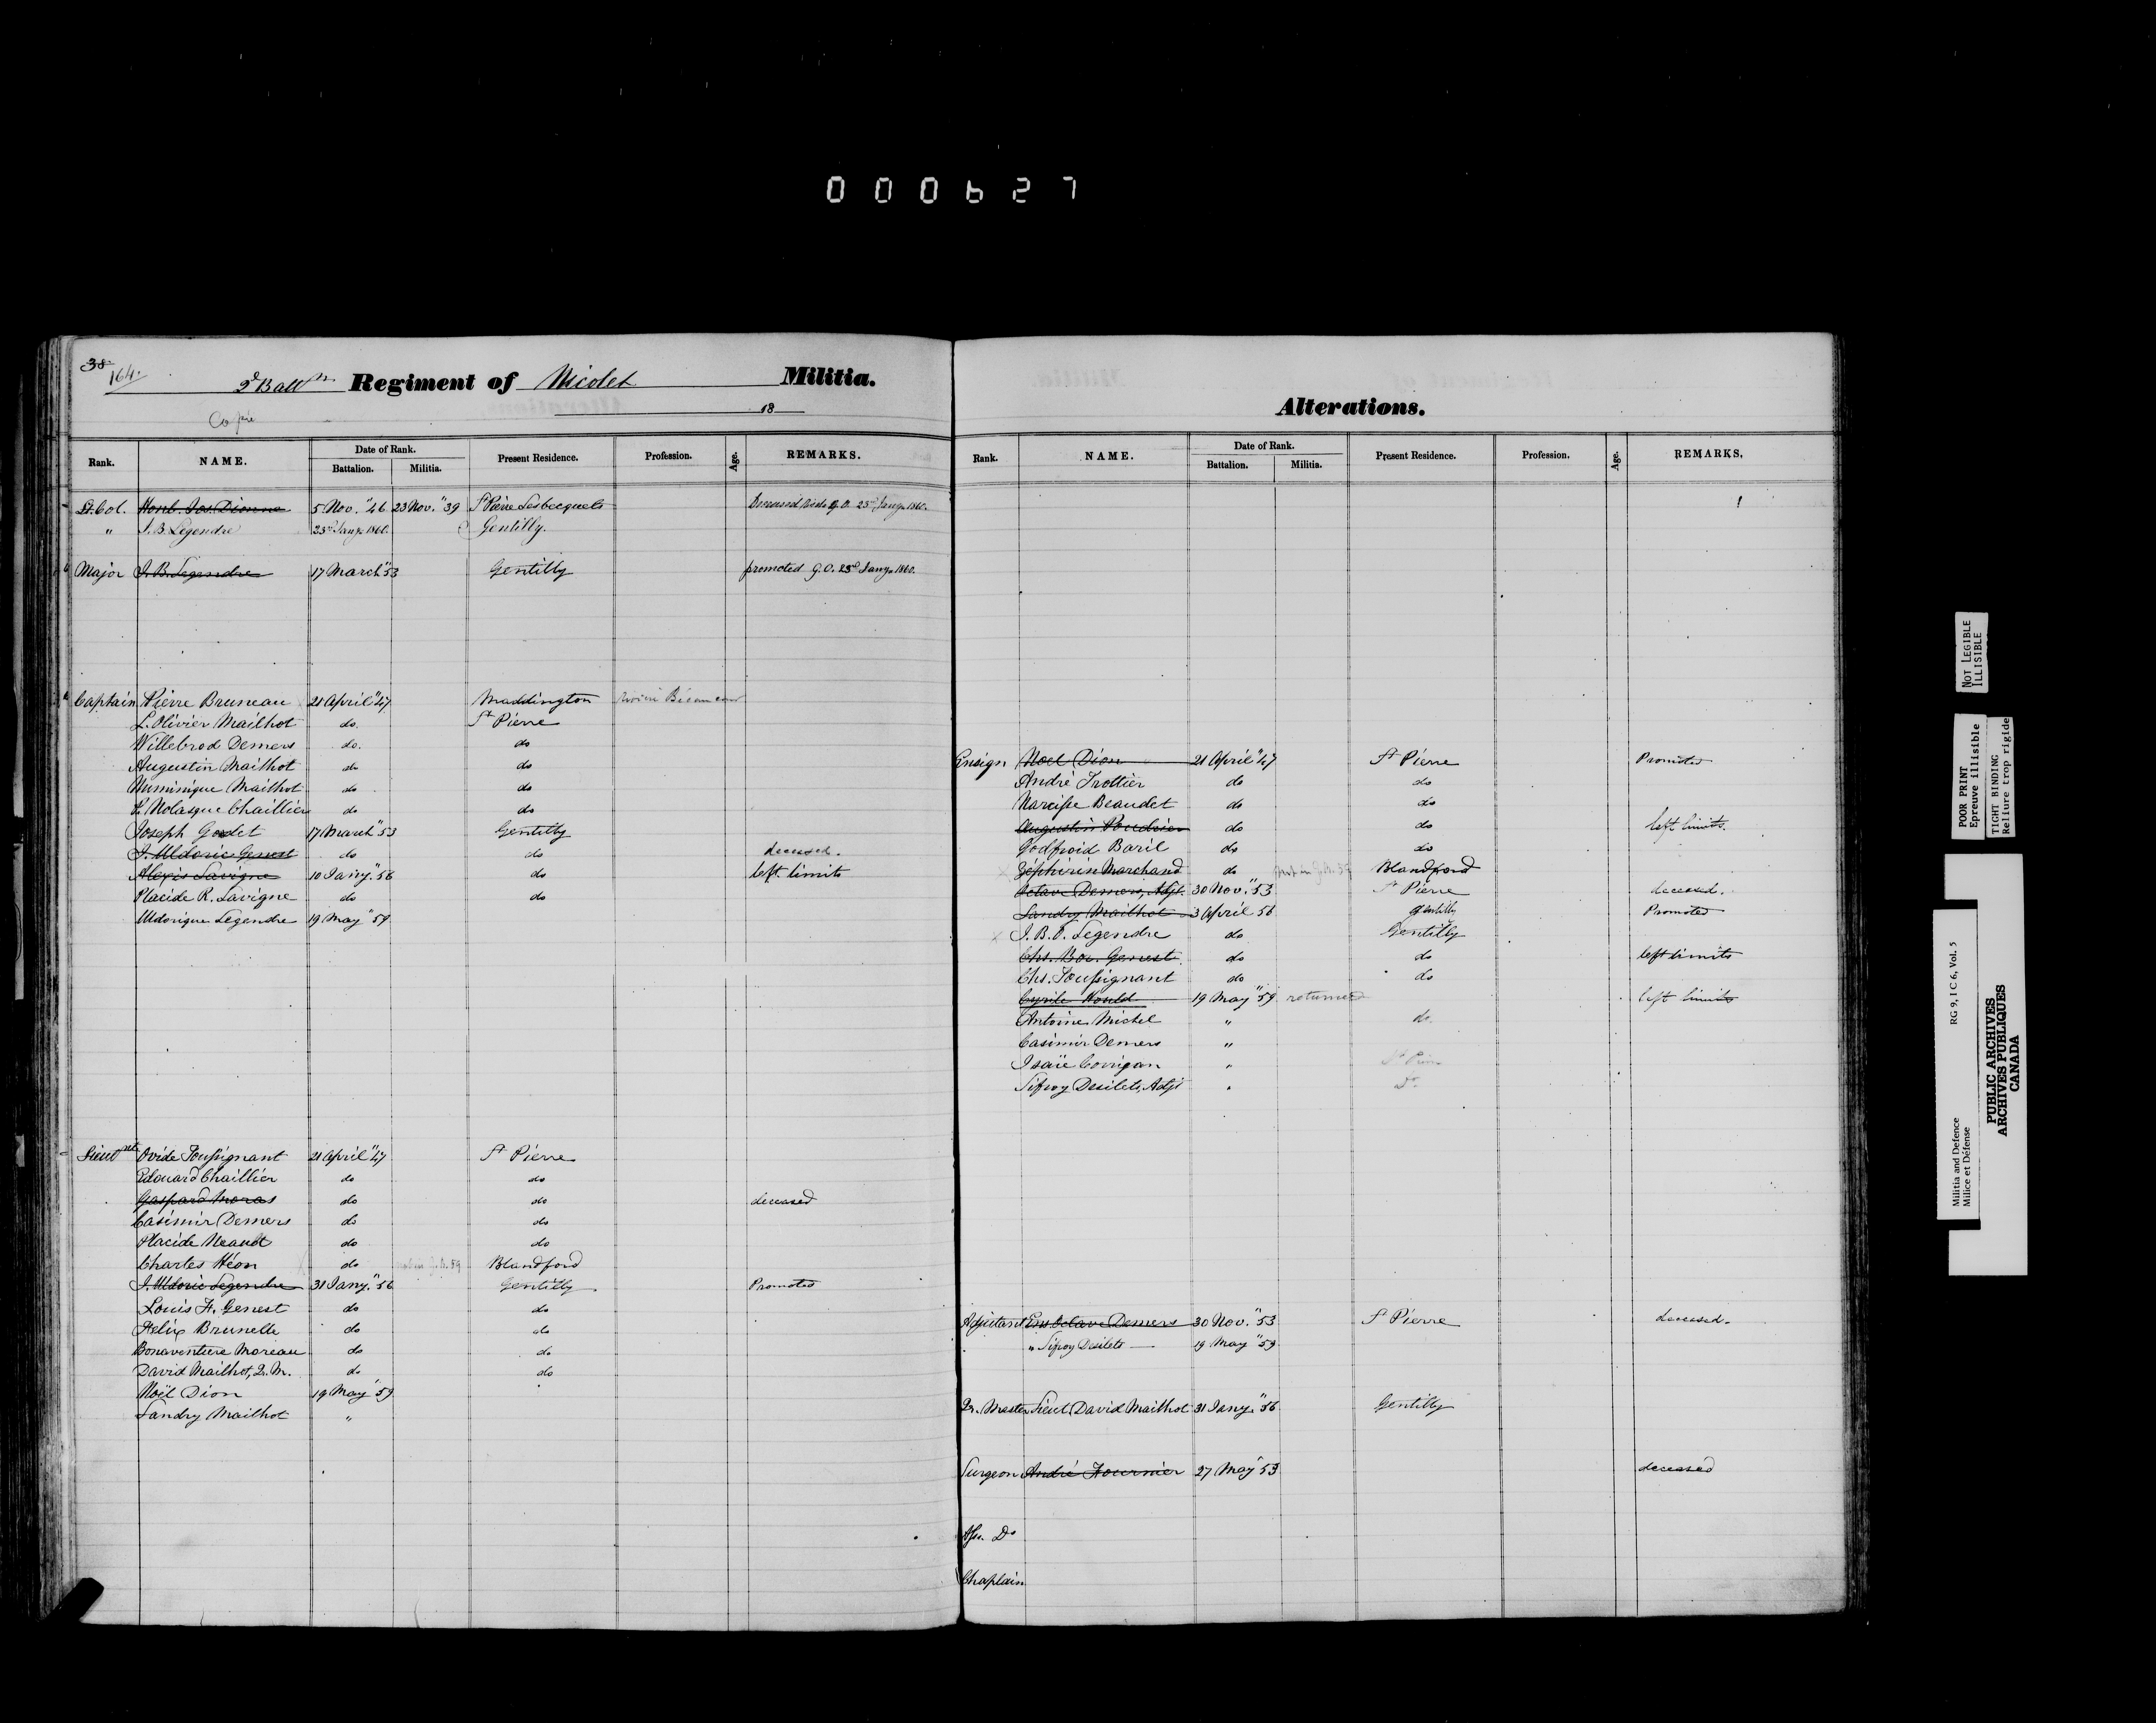 000627
38
164.
2d Battn Regiment of Nicolet Militia.
18
Copie
Rank. NAME. Date of Rank. Present Residence. Profession. Age. REMARKS.
Battalion. Militia.
Lt. Col. Honb. Jos. Dionne 5 Nov. "46 23 Nov. "39 St Pierre Lesbecquets Deceased, vide G.O. 23rd Jany. 1860.
" J. B. Legendre 23rd Jany. 1860. Gentilly.
Major J. B. Legendre 17 March "53 Gentilly promoted G.O. 23rd Jany. 1860.
Captain Pierre Bruneau 21 April "47 Maddington
L. Olivier Mailhot do. St Pierre
Willebrod Demers do. do
Augustin Mailhot do do
Mailhot do do
Nolasque Chaillier do do
Joseph Godet 17 March "53 Gentilly
J. Uldoric Genest do do deceased.
Alexis Lavigne 10 Jany. "56 do left limits
Placide R. Lavigne do do
Uldorique Legendre 19 May "59
Lieutnts Ovide Toussignant 21 April "47 St Pierre
Edouard Chaillier do do
Gaspard Moras do do deceased
Casimir Demers do do
Placide do do
Charles Héon do Blandford
J. Uldoric Legendre 31 Jany. "56 Gentilly Promoted
Louis H. Genest do do
Félix Brunelle do do
Bonaventure Moreau do do
David Mailhot, Qr. M. do do
Noël Dion 19 May "59
Landry Mailhot "
Alterations.
Rank. NAME. Date of Rank. Present Residence. Profession. Age. REMARKS.
Battalion. Militia.
Ensign Noel Dion 21 April "47 St Pierre Promoted
André Trottier do do
Narcisse Beaudet do do
Augustin Poudrier do do left limits.
Godfroid Baril do do
Zéphirin Marchand do Blandford
Octave Demers, Adjt. 30 Nov. "53 St Pierre deceased.
Landry Mailhot 3 April 56 Gentilly Promoted
J. B. T. Legendre do Gentilly
Chs. Bon. Genest do do left limits
Chs. Toussignant do do
Cyrile Hould 19 May "59 returned left limits
Antoine Michel " do.
Casimir Demers "
Isaïe Corrigan " St Pierre
Sifroy Desilets, Adjt " Do
Adjutant Ens. Octave Demers 30 Nov. "53 St Pierre deceased.
" Sifroy Desilets 19 May "59
Qr. Master Lieut. David Mailhot 31 Jany. "56 Gentilly
Surgeon André Fournier 27 May "53 deceased
Ass. Do
Chaplain
NOT LEGIBLE
ILLISIBLE
POOR PRINT
Epreuve illisible
TIGHT BINDING
Reliure trop rigide
RG 9, I C 6, Vol. 5
Militia and Defence
Milice et Défense
PUBLIC ARCHIVES
ARCHIVES PUBLIQUES
CANADA